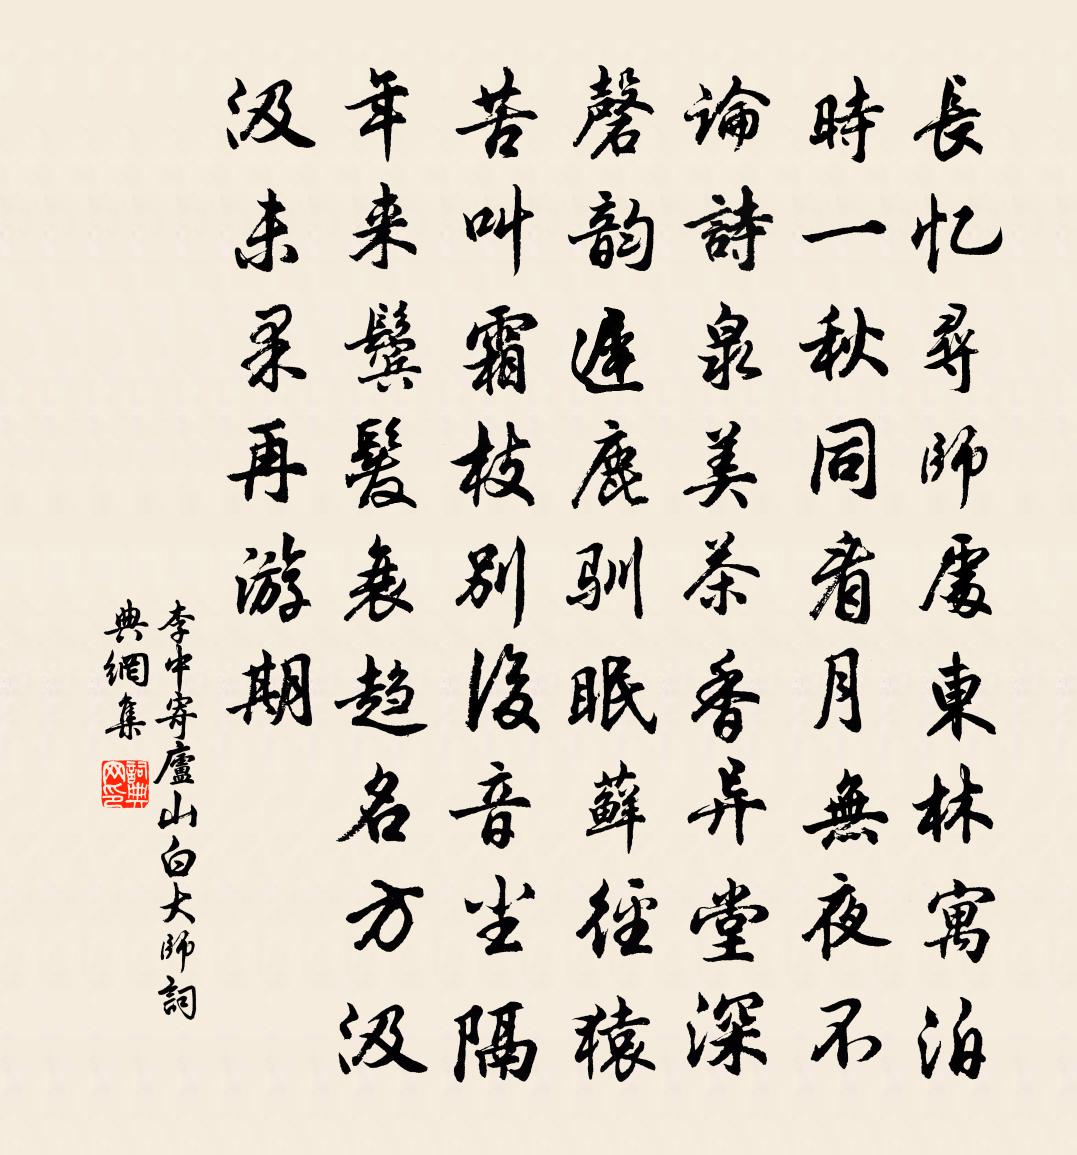 長忆尋師處東林寓泊
時一秋同看月無夜不
論詩泉美茶香异堂深
磬韵遲鹿馴眠蘚徑猿
苦叫霜枝别後音尘隔
年来鬢髮衰趋名方汲
汲未果再游期
李中寄廬山白大師詞
典網集
詞典
网印